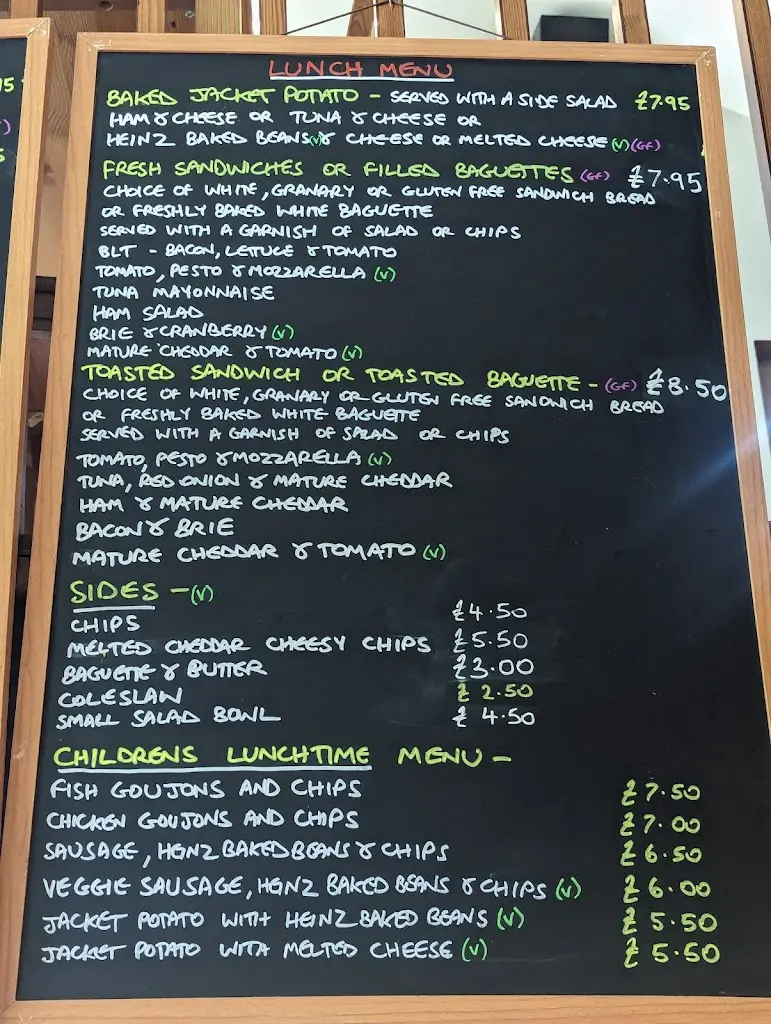 LUNCH MENU
BAKED JACKET POTATO - SERVED WITH A SIDE SALAD £7.95
HAM & CHEESE OR TUNA & CHEESE OR
HEINZ BAKED BEANS (V) & CHEESE OR MELTED CHEESE (V) (GF)
FRESH SANDWICHES OR FILLED BAGUETTES (GF) £7.95
CHOICE OF WHITE, GRANARY OR GLUTEN FREE SANDWICH BREAD
OR FRESHLY BAKED WHITE BAGUETTE
SERVED WITH A GARNISH OF SALAD OR CHIPS
BLT - BACON, LETUCE & TOMATO
TOMATO, PESTO & MOZZARELLA (V)
TUNA MAYONNAISE
HAM SALAD
BRIE & CRANBERRY (V)
MATURE CHEDDAR & TOMATO (V)
TOASTED SANDWICH OR TOASTED BAGUETTE - (GF) £8.50
CHOICE OF WHITE, GRANARY OR GLUTEN FREE SANDWICH BREAD
OR FRESHLY BAKED WHITE BAGUETTE
SERVED WITH A GARNISH OF SALAD OR CHIPS
TOMATO, PESTO & MOZZARELLA (V)
TUNA, RED ONION & MATURE CHEDDAR
HAM & MATURE CHEDDAR
BACON & BRIE
MATURE CHEDDAR & TOMATO (V)
SIDES - (V)
CHIPS £4.50
MELTED CHEDDAR CHEESY CHIPS £5.50
BAGUETTE & BUTTER £3.00
COLESLAW £2.50
SMALL SALAD BOWL £4.50
CHILDRENS LUNCHTIME MENU -
FISH GOUJONS AND CHIPS £7.50
CHICKEN GOUJONS AND CHIPS £7.00
SAUSAGE, HEINZ BAKED BEANS & CHIPS £6.50
VEGGIE SAUSAGE, HEINZ BAKED BEANS & CHIPS (V) £6.00
JACKET POTATO WITH HEINZ BAKED BEANS (V) £5.50
JACKET POTATO WITH MELTED CHEESE (V) £5.50